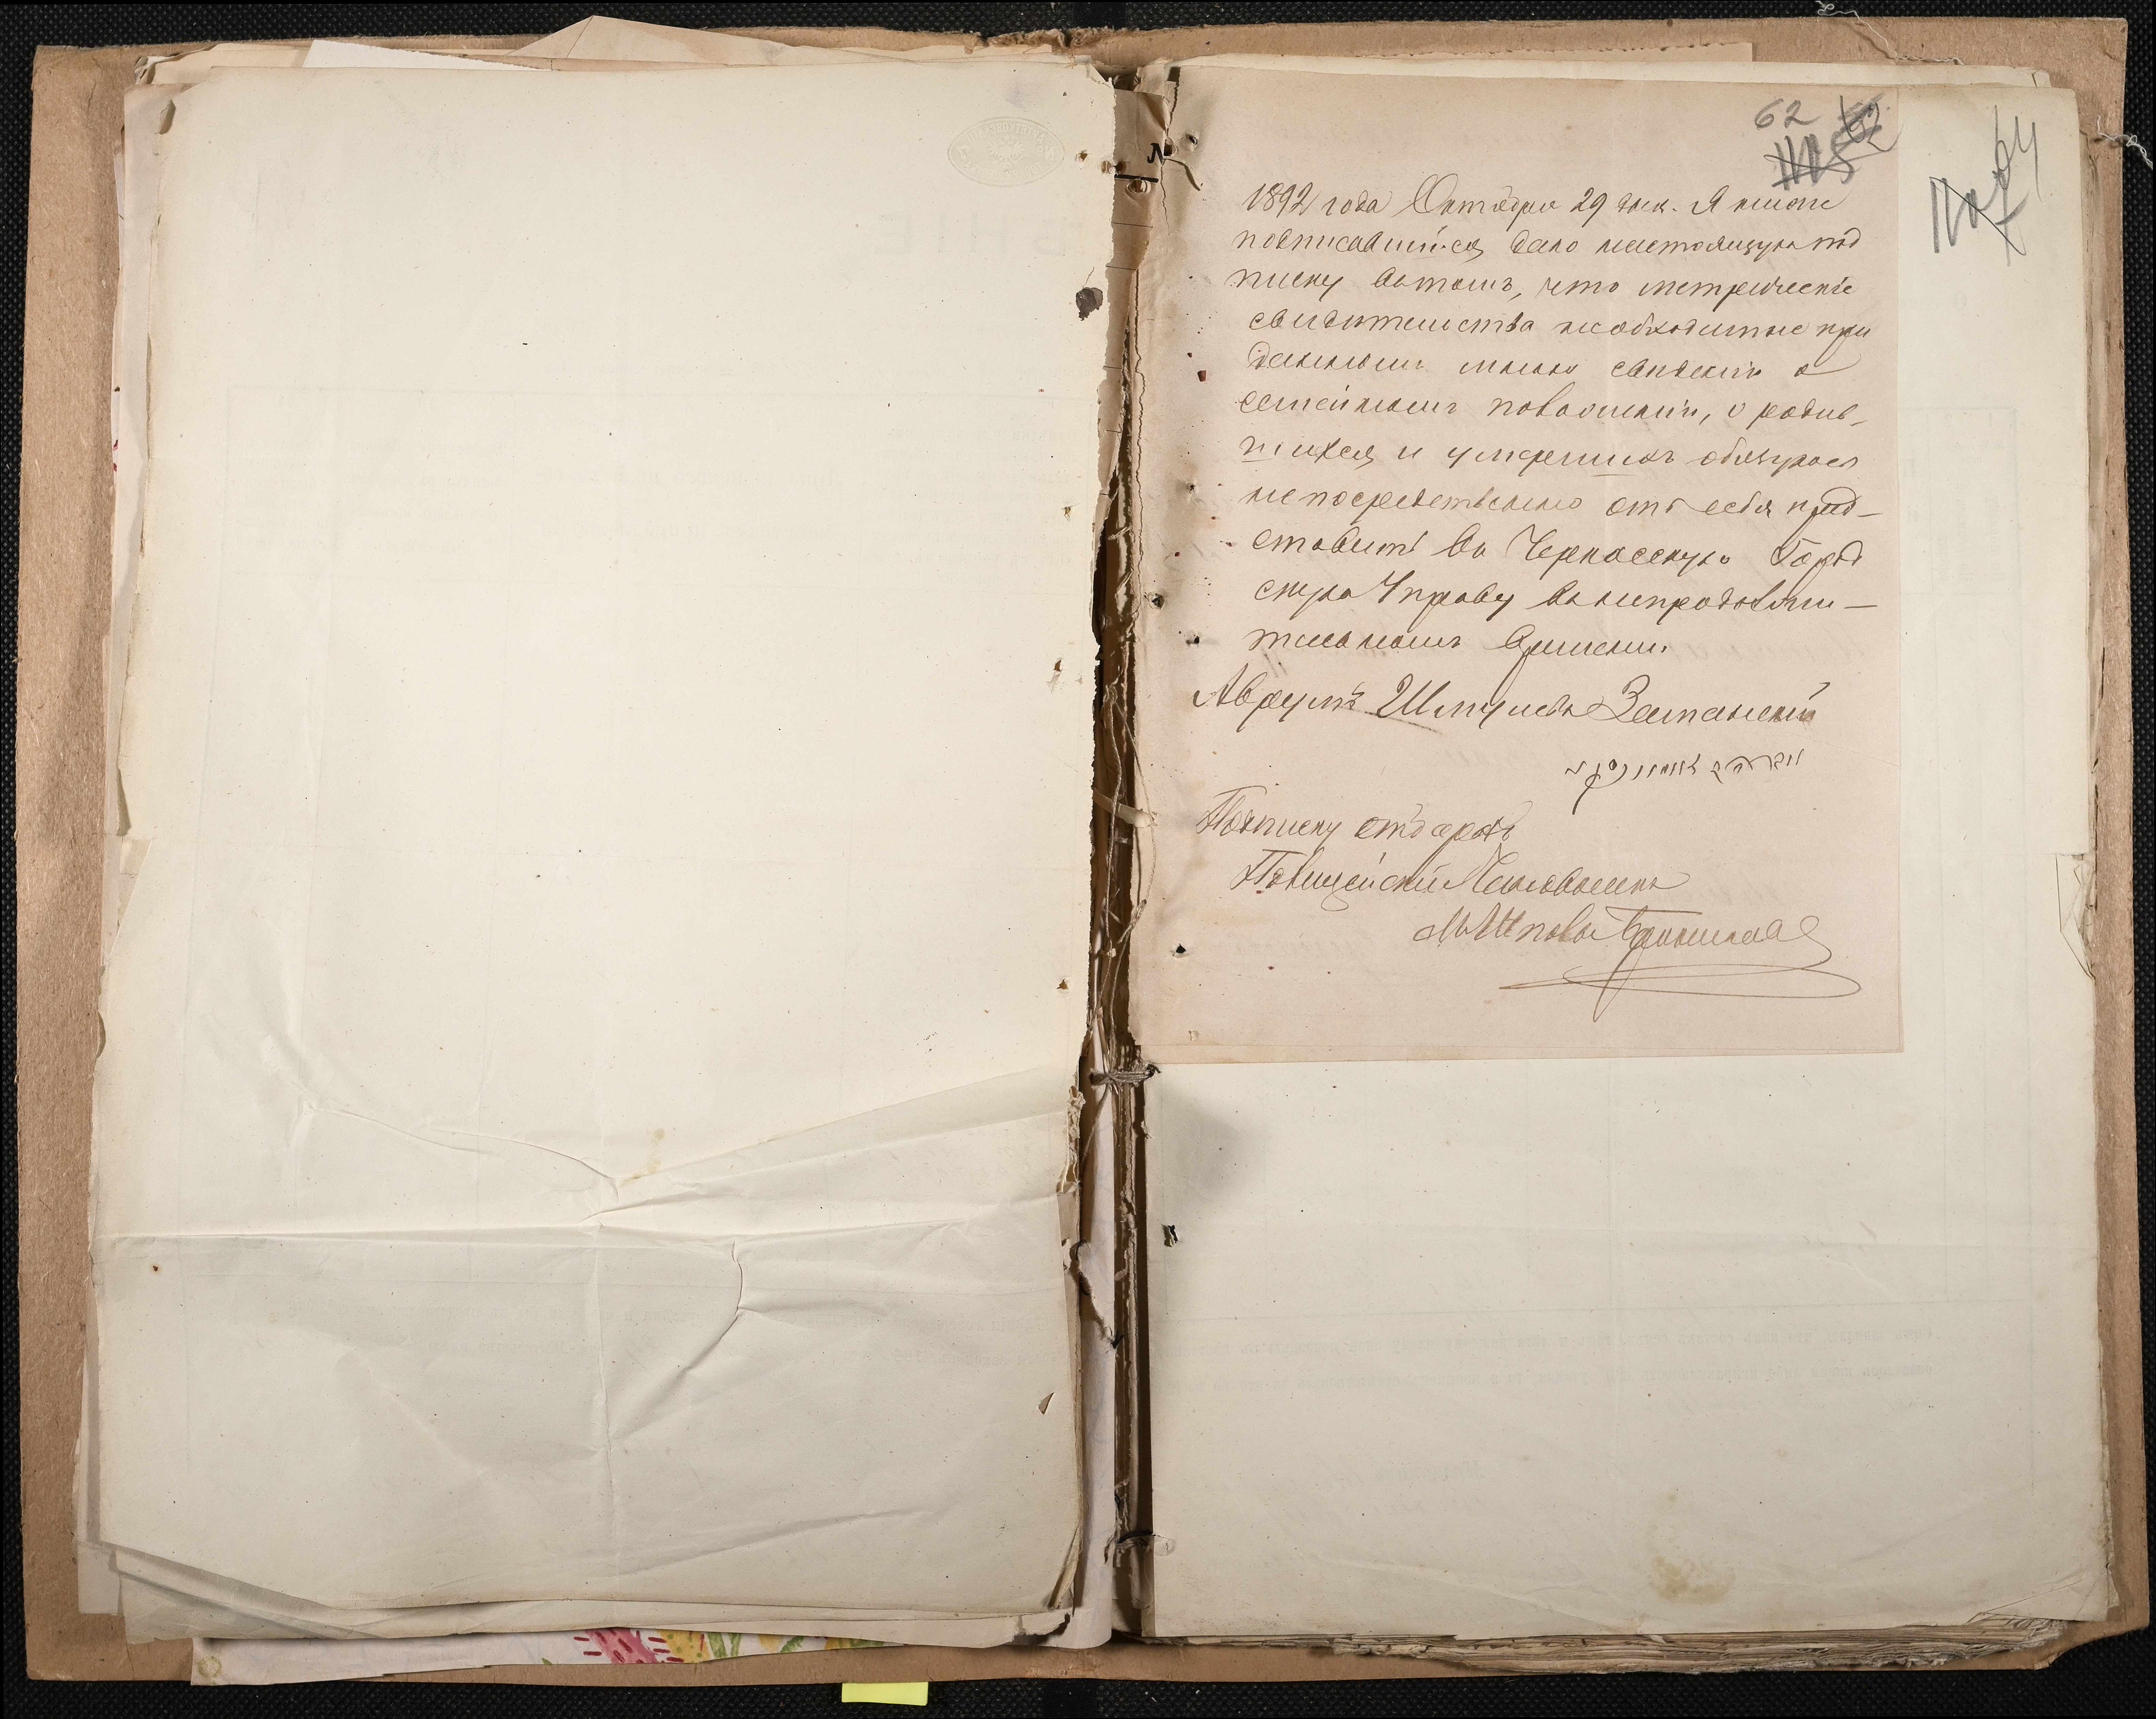 62
64
1892 года Октября 29 дня. Я ниже
подписавшийся даю настоящую под
писку въ томъ, что метрическіе
свидѣтельства необходимые при
данномъ мною свѣденіи о
семейномъ положеніи, о родив-
шихся и умершихъ обязуюсь
непосредственно отъ себя пред-
ставить въ Черкасскую Город
скую Управу въ непродолжи-
тельномъ времени.
Аврумъ Шмулевъ
Подписку отобралъ
Полицейскій